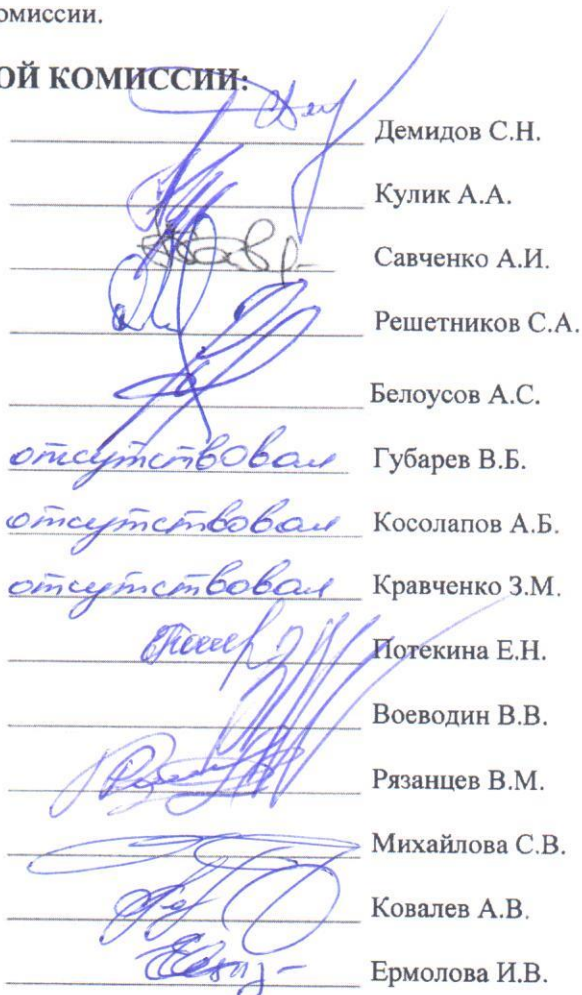 омиссии.
ОЙ КОМИССИИ:
Демидов С.Н.
Кулик А.А.
Савченко А.И.
Решетников С.А.
Белоусов А.С.
отсутствовал Губарев В.Б.
отсутствовал Косолапов А.Б.
отсутствовал Кравченко З.М.
Потекина Е.Н.
Воеводин В.В.
Рязанцев В.М.
Михайлова С.В.
Ковалев А.В.
Ермолова И.В.